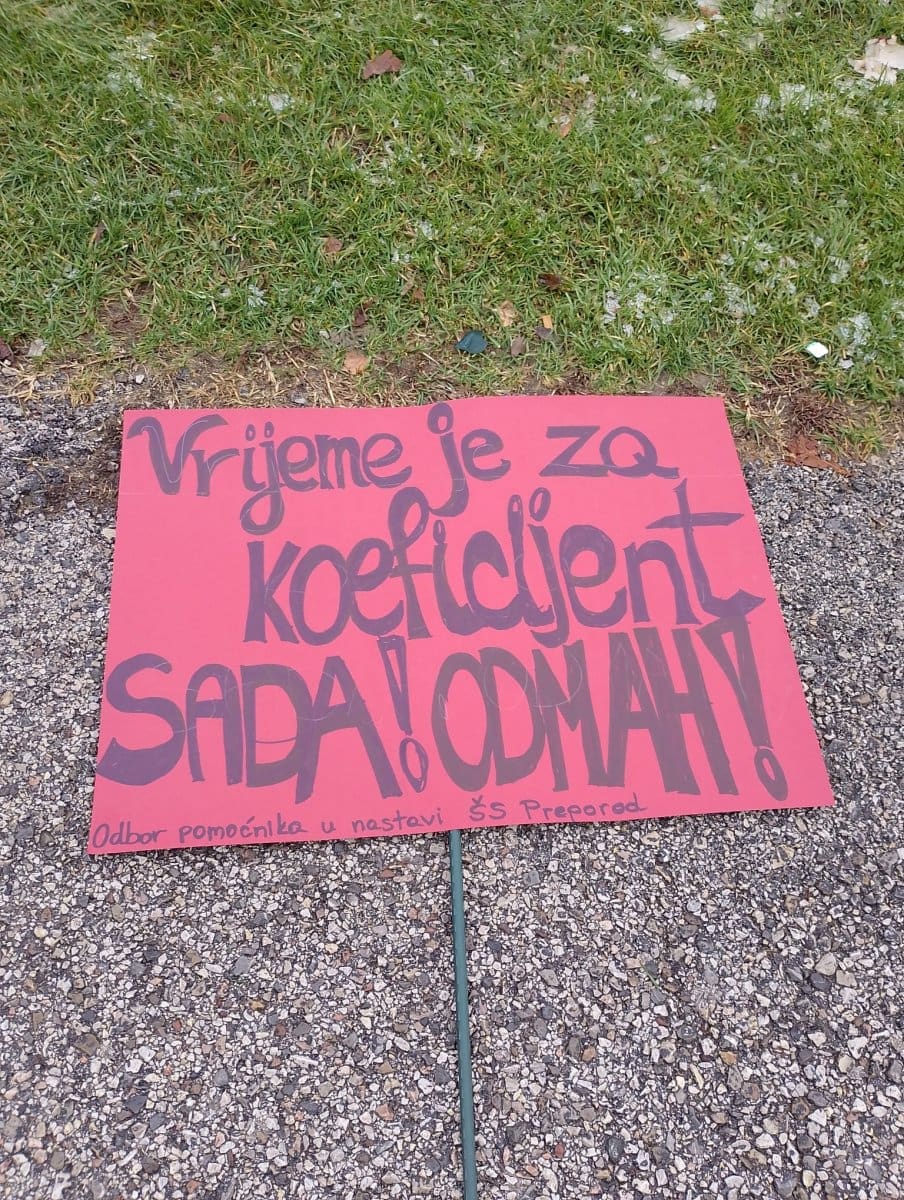 Vrijeme je za
koeficijent
SADA! ODMAH!
Odbor pomoćnika u nastavi ŠS Preporod